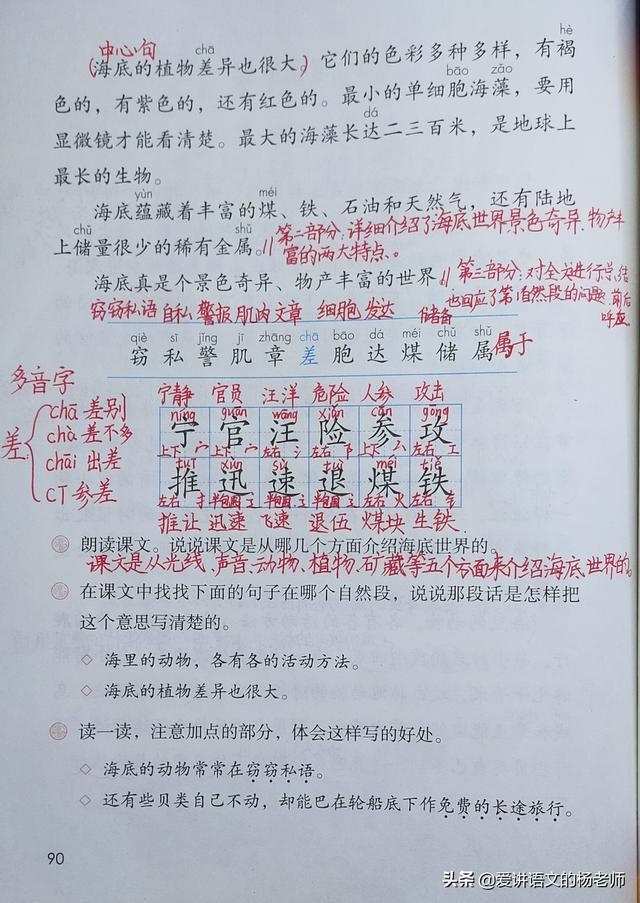 中心句
chā hè
(海底的植物差异也很大。)它们的色彩多种多样，有褐
bāo zǎo
色的，有紫色的，还有红色的。最小的单细胞海藻，要用
dá
显微镜才能看清楚。最大的海藻长达二三百米，是地球上
最长的生物。
yùn méi
海底蕴藏着丰富的煤、铁、石油和天然气，还有陆地
chǔ shǔ
上储量很少的稀有金属。//第二部分：详细介绍了海底世界景色奇异、物产丰
富的两大特点。
海底真是个景色奇异、物产丰富的世界。//第三部分：对全文进行总结
也回应了第1自然段的问题 前后
呼应
窃窃私语 自私 警报 肌肉 文章 细胞 发达 储备
qiè sī jǐng jī zhāng chā bāo dá méi chǔ shǔ
窃 私 警 肌 章 差 胞 达 煤 储 属 属于
多音字
差
chā 差别
chà 差不多
chāi 出差
cī 参差
宁静 官员 汪洋 危险 人参 攻击
níng guān wāng xiǎn cān gōng
宁 官 汪 险 参 攻
上下 宀 上下 宀 左右 氵 左右 阝 上下 厶 左右 工
tuī xùn sù tuì méi tiě
推 迅 速 退 煤 铁
左右 扌 半包围 辶 半包围 辶 半包围 辶 左右 火 左右 钅
推让 迅速 飞速 退伍 煤块 生铁
朗读课文。说说课文是从哪几个方面介绍海底世界的。
课文是从光线、声音、动物、植物、矿藏等五个方面来介绍海底世界的。
在课文中找找下面的句子在哪个自然段，说说那段话是怎样把
这个意思写清楚的。
◇ 海里的动物，各有各的活动方法。
◇ 海底的植物差异也很大。
读一读，注意加点的部分，体会这样写的好处。
◇ 海底的动物常常在窃窃私语。
◇ 还有些贝类自己不动，却能巴在轮船底下作免费的长途旅行。
90
头条 @爱讲语文的杨老师